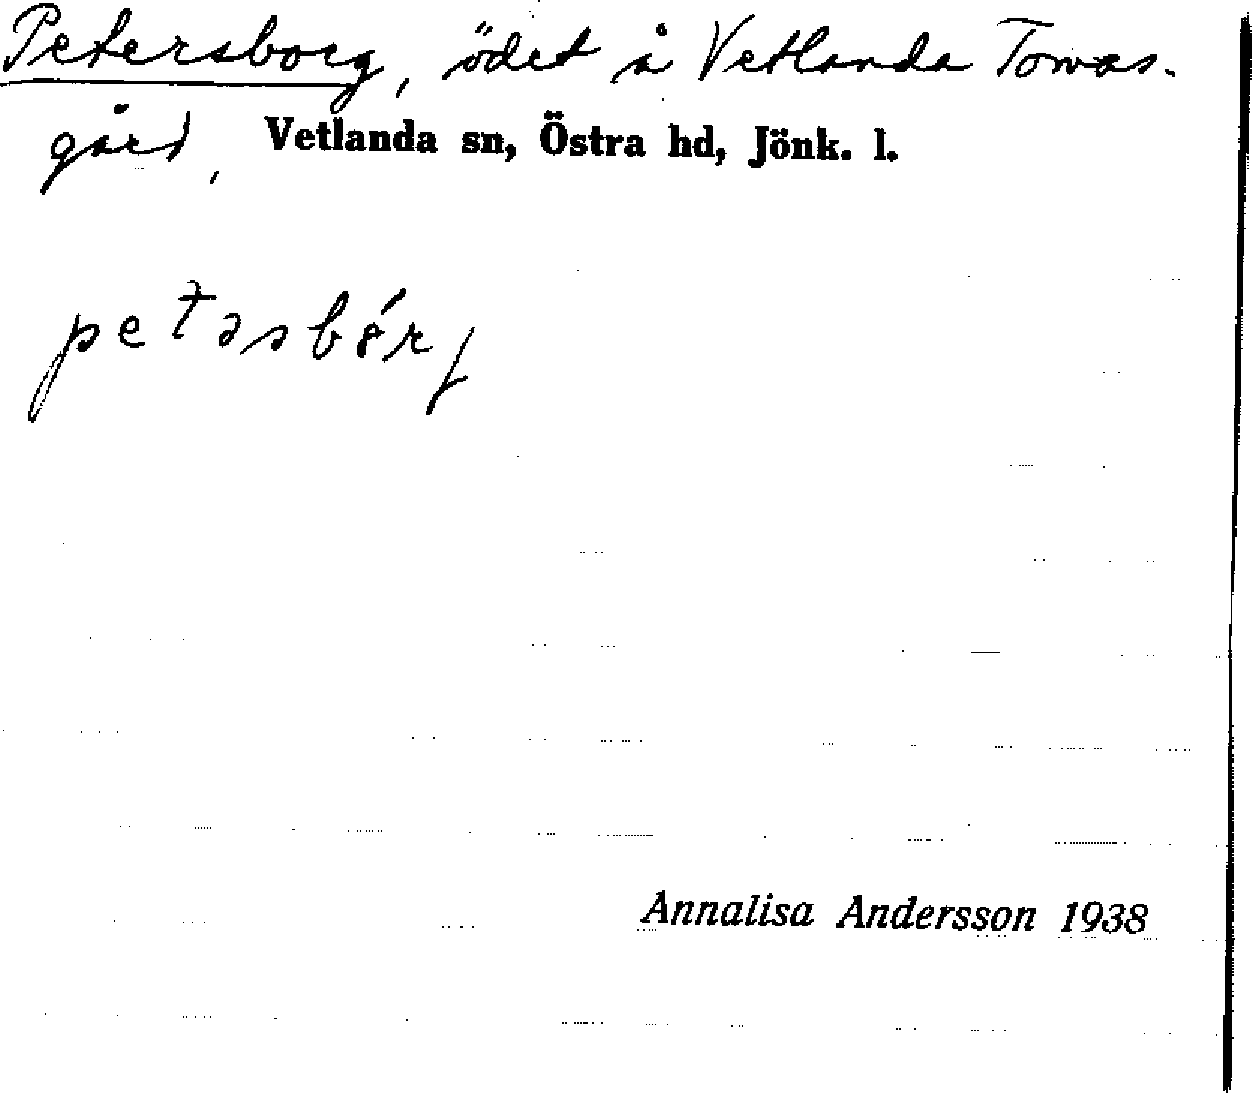 Petersborg, ödet å Vetlanda Tomas-
gård, Vetlanda sn, Östra hd, Jönk. l.
petəsbórj
Annalisa Andersson 1938